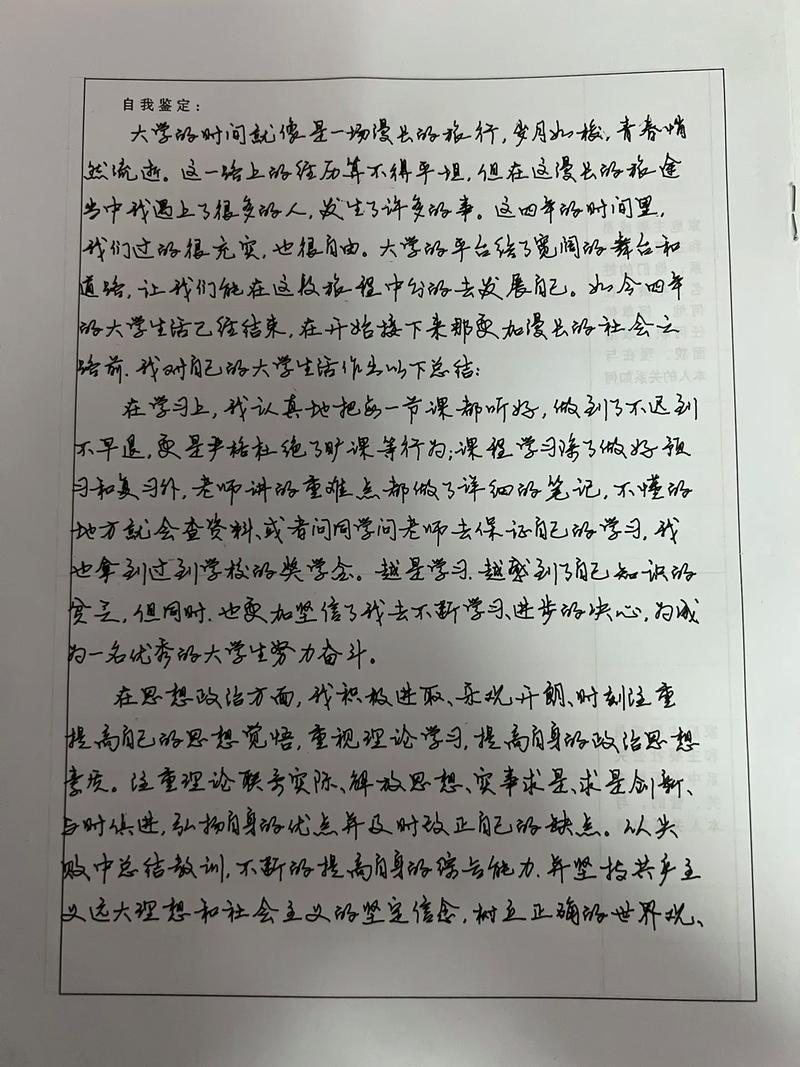 自我鉴定：
大学的时间就像是一场漫长的旅行，岁月如梭，青春悄
然流逝。这一路上的经历算不得平坦，但在这漫长的旅途
当中我遇上了很多的人，发生了许多的事。这四年的时间里，
我们过的很充实，也很自由。大学的平台给了宽阔的舞台和
道路，让我们能在这段旅程中分的去发展自己。如今四年
的大学生活已经结束，在开始接下来那更加漫长的社会之
路前，我对自己的大学生活作出以下总结：
在学习上，我认真地把每一节课都听好，做到了不迟到
不早退，更是严格杜绝了旷课等行为；课程学习除了做好预
习和复习外，老师讲的重难点都做了详细的笔记，不懂的
地方就会查资料、或者问同学问老师去保证自己的学习，我
也拿到过到学校的奖学金。越是学习，越感到了自己知识的
贫乏，但同时，也更加坚信了我去不断学习、进步的决心，为成
为一名优秀的大学生努力奋斗。
在思想政治方面，我积极进取、乐观开朗、时刻注重
提高自己的思想觉悟，重视理论学习，提高自身的政治思想
素质。注重理论联系实际、解放思想、实事求是、求是创新、
与时俱进，弘扬自身的优点并及时改正自己的缺点。从失
败中总结教训，不断的提高自身的综合能力，并坚持共产主
义远大理想和社会主义的坚定信念，树立正确的世界观、